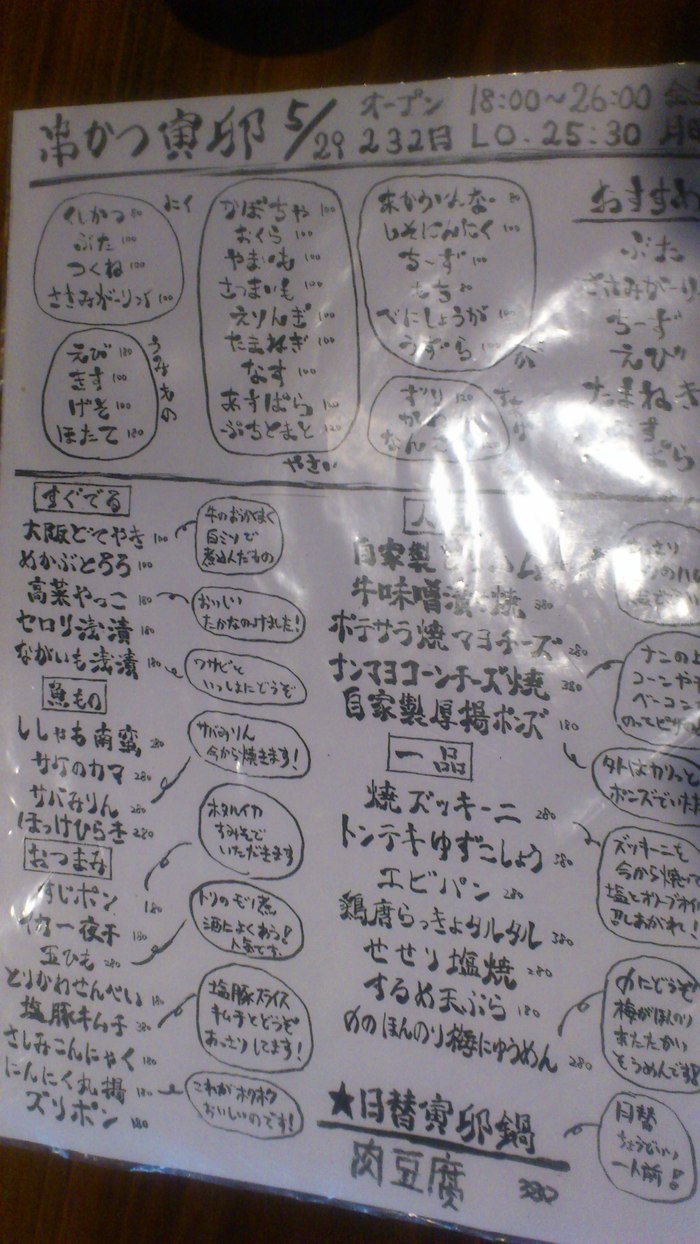 串かつ 寅卯 5/29 232日
オープン 18:00~26:00
LO. 25:30
にく
くしかつ 80
ぶた 100
つくね 100
ささみがーりっく 100
うみもの
えび 180
きす 100
げそ 100
ほたて 120
かぼちゃ 100
おくら 100
やまいも 100
さつまいも 100
えりんぎ 100
たまねぎ 100
なす 100
あすぱら 100
ぷちとまと 120
やさい
しそにんにく 100
ちーず 100
もち 80
べにしょうが 100
うずら 100
ずり 120
おすすめ
ぶた
ささみがーり
ちーず
えび
たまねぎ
すぐでる
大阪どてやき 100
めかぶとろろ 100
高菜やっこ 180
セロリ浅漬 180
ながいも浅漬 180
白ミソで
煮込んだもの
おいしい
たかなのっけました!
ワサビと
いっしょにどうぞ
魚もの
ししゃも南蛮 280
サケのカマ 280
サバみりん 280
ほっけひらき 280
サバみりん
今から焼きます!
おつまみ
すじポン 180
イカ一夜干 180
玉ひも 280
とりかわせんべい 180
塩豚キムチ 380
さしみこんにゃく 180
にんにく丸揚 180
ズリポン 180
ホタルイカ
すみそで
いただきます
トリのモツ煮
酒によくあう!
人気です。
塩豚スライス
キムチとどうぞ
あっさりしてます!
これがホクホク
おいしいのです!
自家製
牛味噌漬焼 380
ポテサラ焼マヨチーズ 280
ナンマヨコーンチーズ焼 380
自家製厚揚ポンズ 180
ナンの上
コーンや
ベーコン
外はカリッと
ポンズでいた
一品
焼ズッキーニ 280
トンテキゆずこしょう 380
エビパン 280
鶏唐らっきょタルタル 380
せせり塩焼 280
するめ天ぷら 180
ののほんのり梅にゅうめん 280
ズッキーニを
今から焼いて
塩とオリーブオイル
召しあがれ!
〆にどうぞ
梅がほんのり
あたたかい
そうめんです
★日替寅卯鍋
肉豆腐 380
日替
ちょうどいい
一人前!